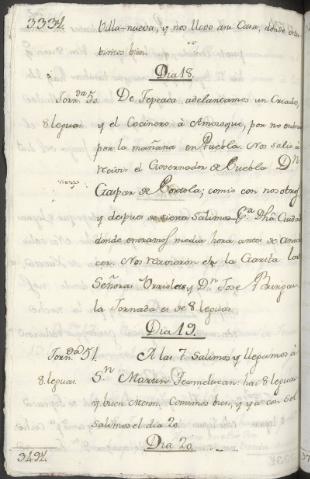 333½.
Villa-nueva, y no llevo à su Casa, donde estu
bimos bien
Dia 18.
Jorn.da 50. De Tepeaca adelantamos un Criado,
8 leguas. y el Cocinero à Amosoque, por no entrar
por la mañana en Puebla. Nos salió à
recivir el Governador de Puebla Dn
Gaspar de Portola; comió con nosotros
y despues de siesta salimos pa. dha. Ciudad
donde entramos media hora antes de anoche
cer. Nos recivieron en la Garita los
Señores y Dn. Jose
la Jornada es de 8 leguas.
Dia 19.
Jorn.da 51. A las 7 salimos, y llegamos à
8 leguas. Sn. Martin Tesmelucan: hai 8 leguas
y buen Meson. Comimos bien, y ya con Sol
salimos el dia 20.
349½.
Dia 20.